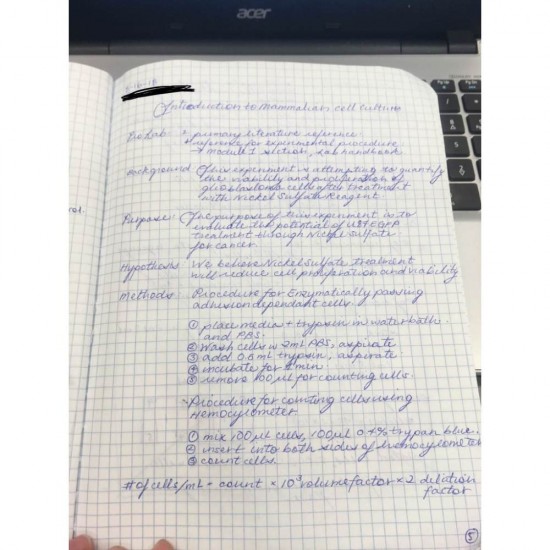 acer
Introduction to mammalian cell culture
PreLab: * primary literature reference
* reference for experimental procedure
* module 1 section, Lab handbook
Background: This experiment is attempting to quantify
the viability and proliferation of
glioblastoma cells after treatment
with Nickel Sulfate Reagent.
Purpose: The purpose of this experiment is to
evaluate the potential of
treatment through Nickel Sulfate
for cancer.
Hypothesis: We believe Nickel Sulfate treatment
will reduce cell proliferation and viability
Methods: Procedure for Enzymatically passing
adhesion dependant cells.
① place media + trypsin in waterbath
and PBS.
② Wash cells w 2mL PBS, aspirate
③ add 0.5mL trypsin, aspirate
④ incubate for min
⑤ remove 100 µl for counting cells.
Procedure for counting cells using
Hemocytometer
① mix 100µl cells, 100µl 0.4% trypan blue.
② insert into both sides of hemocytometer
③ count cells.
# of cells/mL = count × 10³ volume factor × 2 dilution
factor
⑤